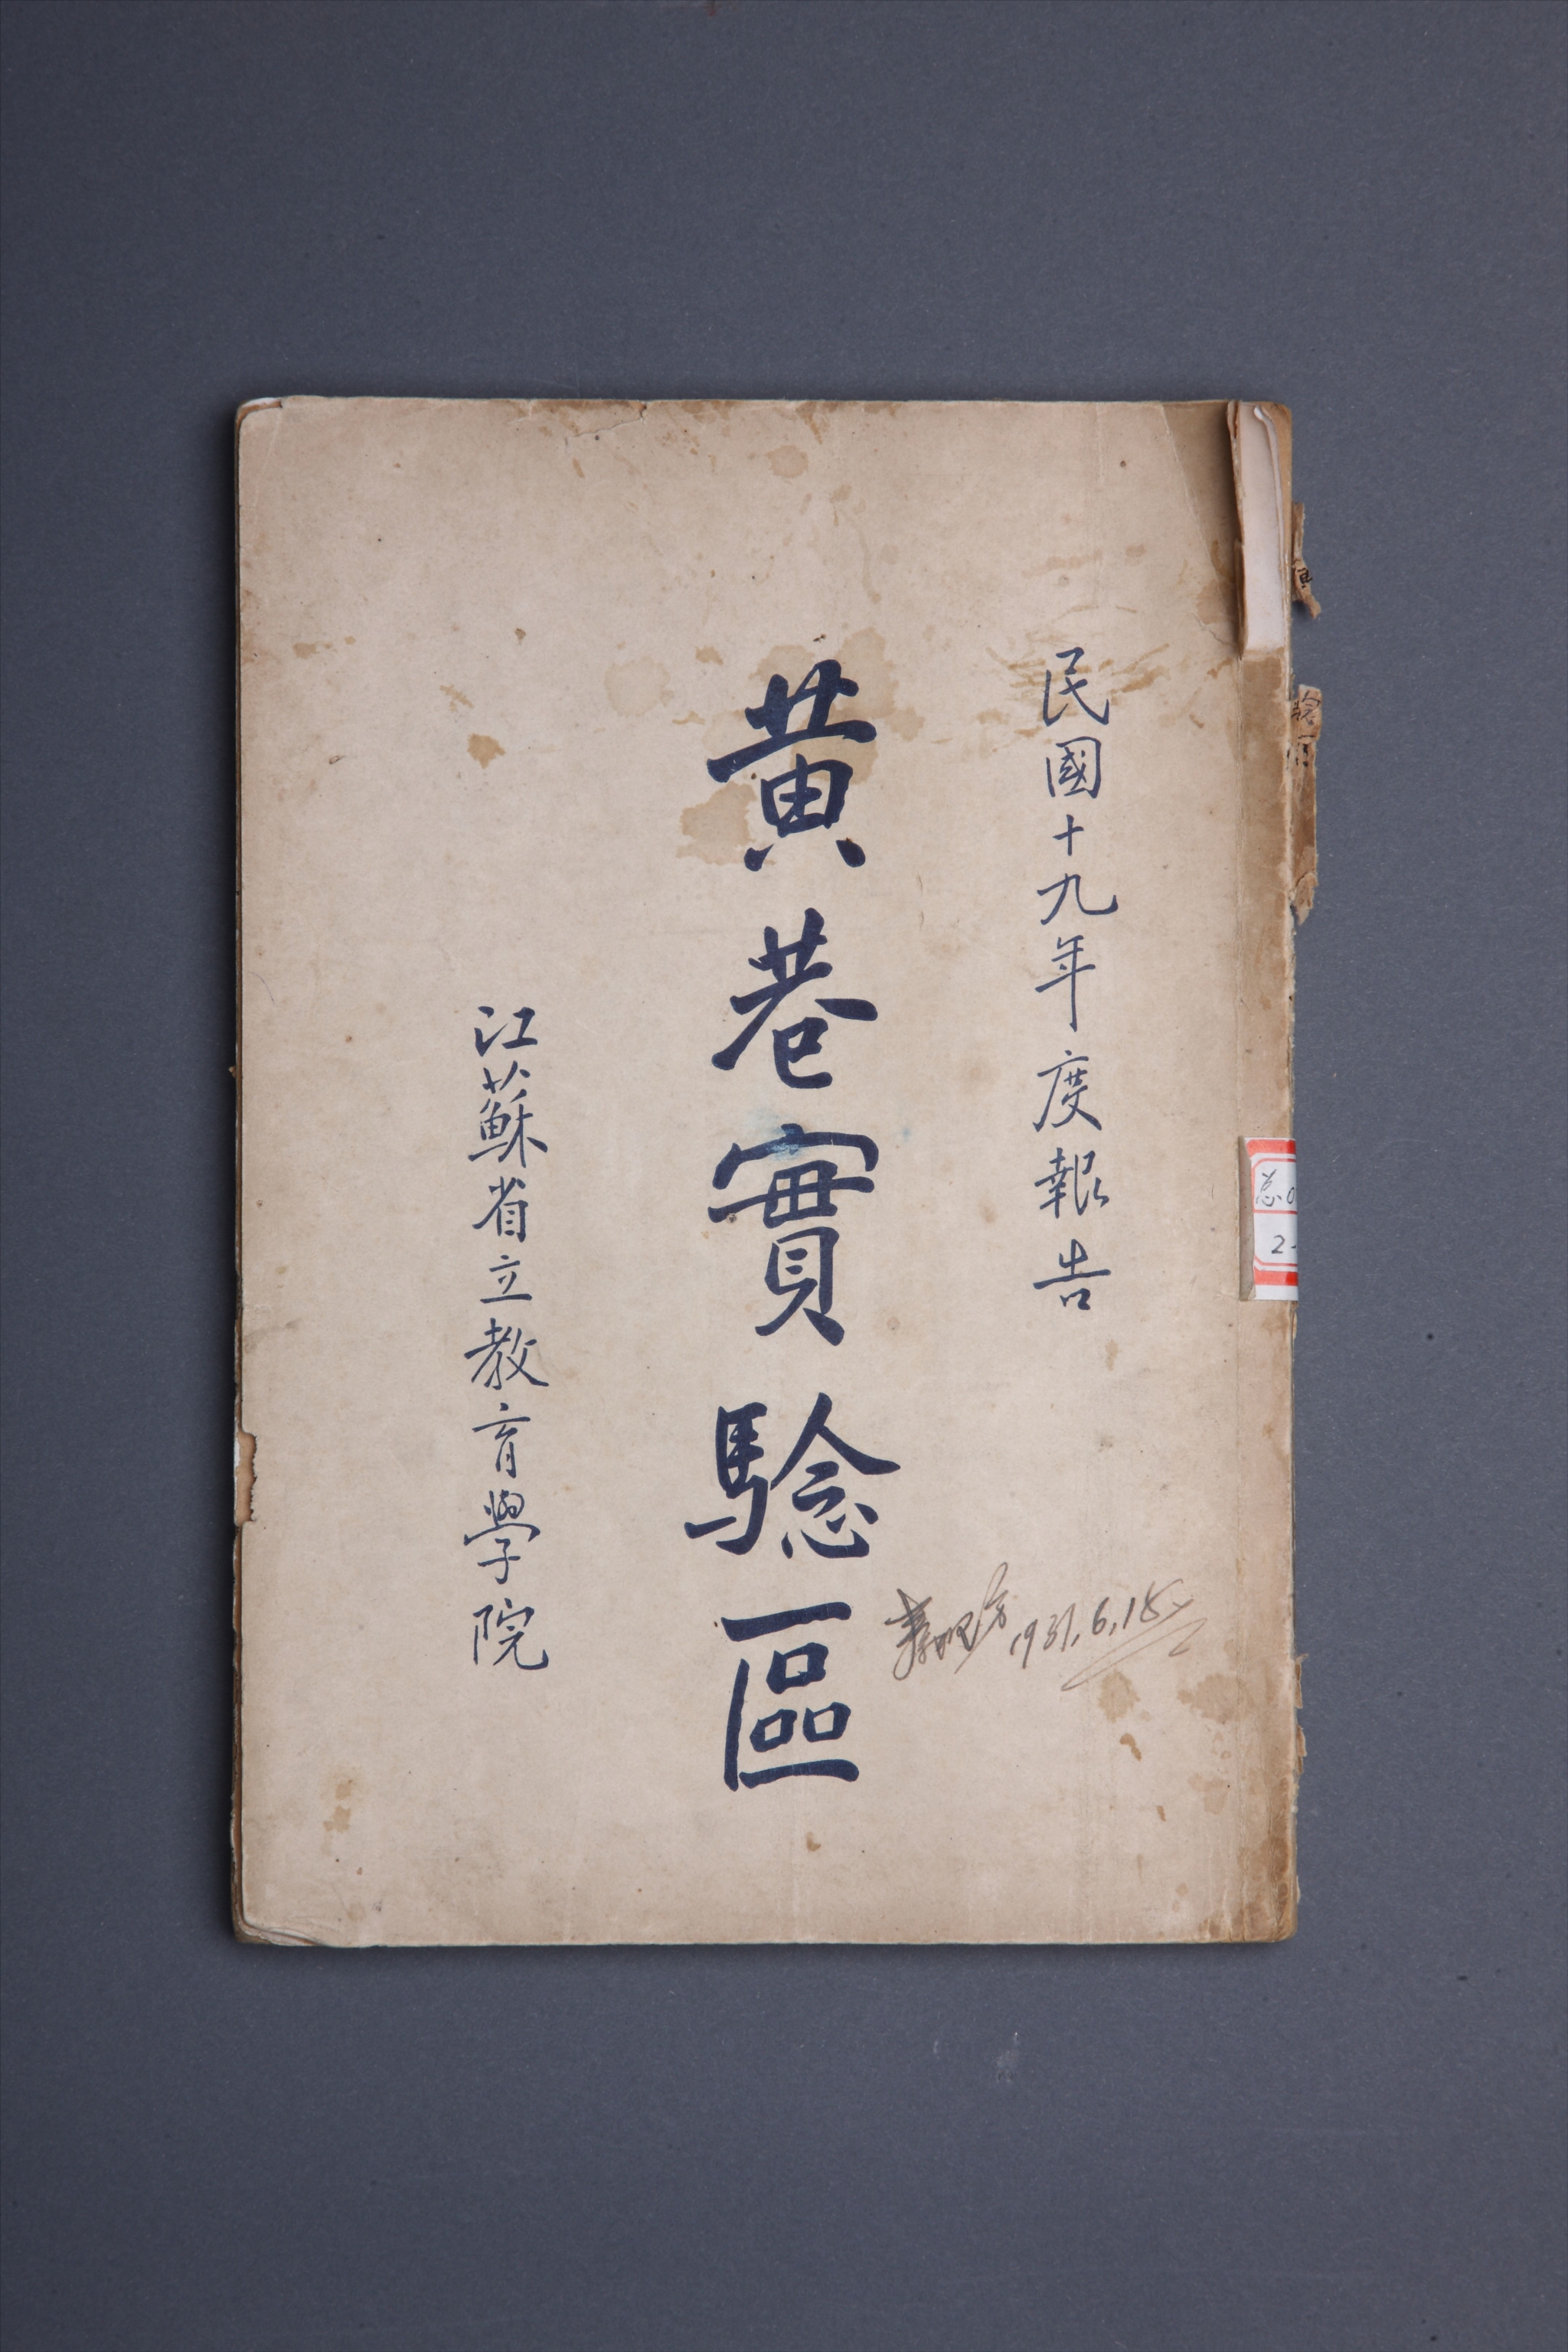 民國十九年度報告
黄巷實騐區
江蘇省立教育學院
1931.6.15
总0
2-